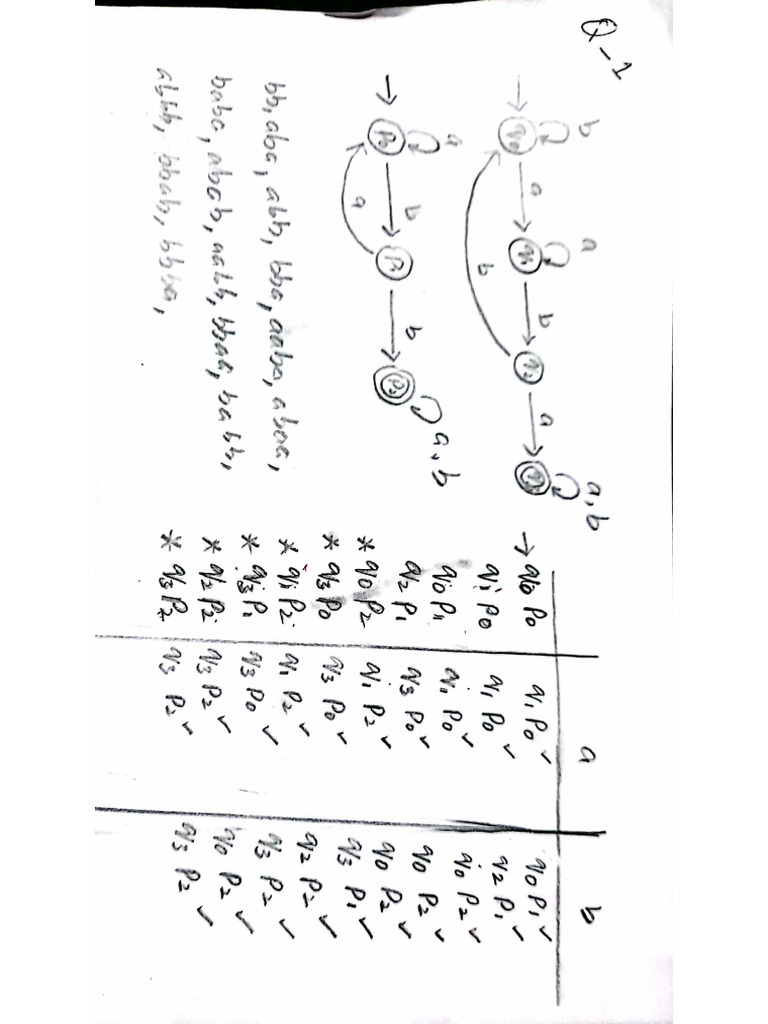 Q-1
b a a, b
→ q0 a q1 b q2 a q3
b
a a, b
→ P0 b P1 b P2
a
bb, aba, abb, bba, aaba, abaa,
baba, abab, aabb, bbaa, babb,
abbb, bbab, bbba,
a b
→ q0 P0 q1 P0 ✓ q0 P1 ✓
q1 P0 q1 P0 ✓ q2 P1 ✓
q0 P1 q1 P0 ✓ q0 P2 ✓
q2 P1 q3 P0 ✓ q0 P2 ✓
* q0 P2 q1 P2 ✓ q0 P2 ✓
* q3 P0 q3 P0 ✓ q3 P1 ✓
* q1 P2 q1 P2 ✓ q2 P2 ✓
* q3 P1 q3 P0 ✓ q3 P2 ✓
* q2 P2 q3 P2 ✓ q0 P2 ✓
* q3 P2 q3 P2 ✓ q3 P2 ✓